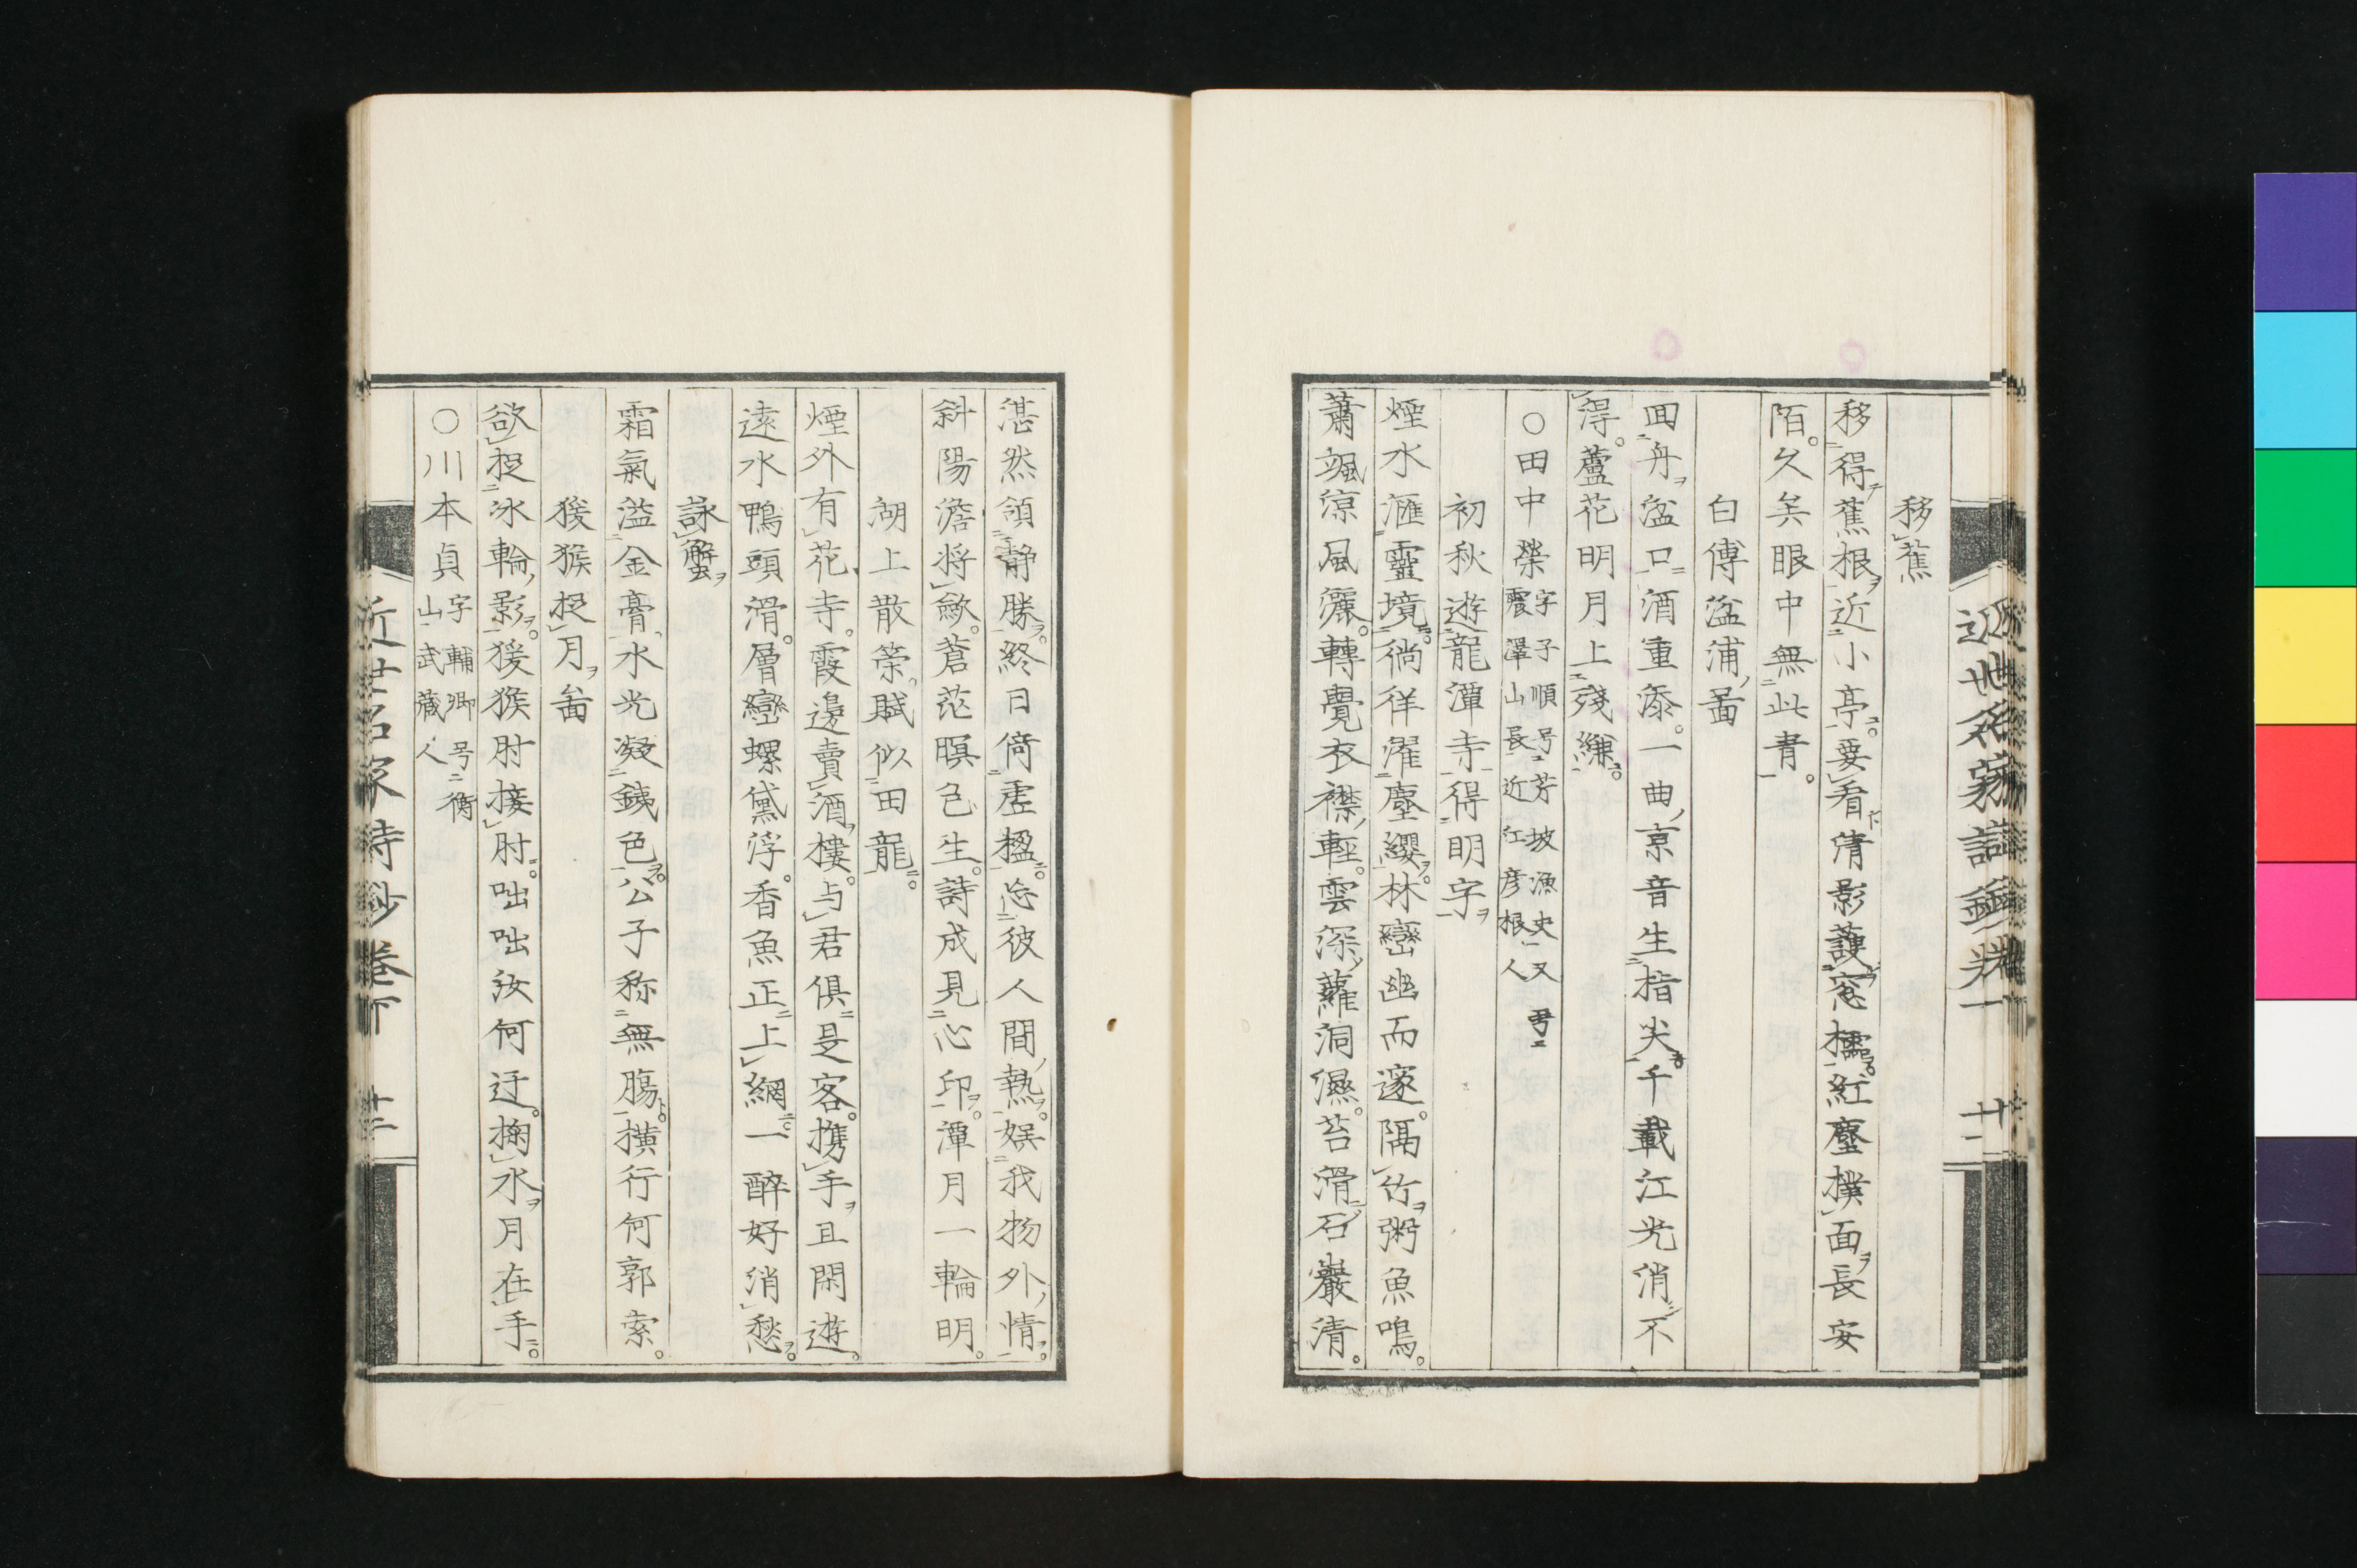 移蕉
移得蕉根近小亭要看清影護窓櫺紅塵撲面長安
陌久矣眼中無此青
白傅湓浦啚
回舟湓口酒重添一曲京音生指尖千載江光消不
得蘆花明月上殘縑
○田中榮字子順号芳坡漁史又号
震澤山長近江彦根人
初秋遊龍潭寺得明字
煙水滙靈境徜徉濯塵纓林巒幽而邃隔竹粥魚鳴
蕭颯涼風灑轉覺衣襟輕雲深蘿洞濕苔滑石巖清
湛然領静勝終日倚虚楹忘彼人間熱娯我物外情
斜陽澹将斂蒼茫暝色生詩成見心印潭月一輪明
湖上散策賦似田龍
煙外有花寺霞邊賣酒樓与君倶是客携手且閑遊
遠水鴨頭滑層巒螺黛浮香魚正上網一醉好消愁
詠蟹
霜氣溢金膏水光凝鐵色公子称無膓横行何郭索
猨猴捉月啚
欲捉冰輪影猨猴肘接肘咄咄汝何迂掬水月在手
○川本貞字輔卿号衡
山武藏人
近世名家詩鈔卷下 廿二